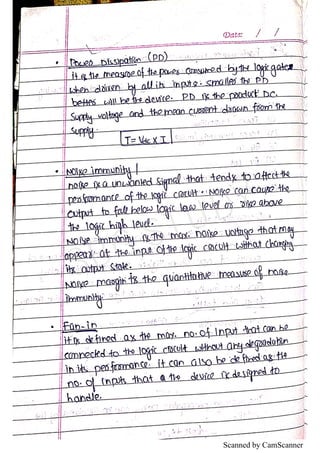 Date: / /
• Power Dissipation (PD)
It is the measure of the power consumed by the logic gates
when driven by all its inputs. smaller the PD
better will be the device. PD is the product DC.
Supply voltage and the mean current drawn from the
supply.
T = Vcc X I
• Noise immunity /
noise is a unwanted signal that tends to affect the
performance of the logic circuit. Noise can cause the
output to fall below logic low level or rise above
the logic high level.
Noise immunity is the max. noise voltage that may
appears at the input of the logic circuit without changing
its output state.
Noise margin is the quantitative measure of noise
immunity.
• Fan-in
It is defined as the max. no. of input that can be
connected to the logic circuit without any degradation
in its performance. it can also be defined as the
no. of inputs that a the device is designed to
handle.
Scanned by CamScanner